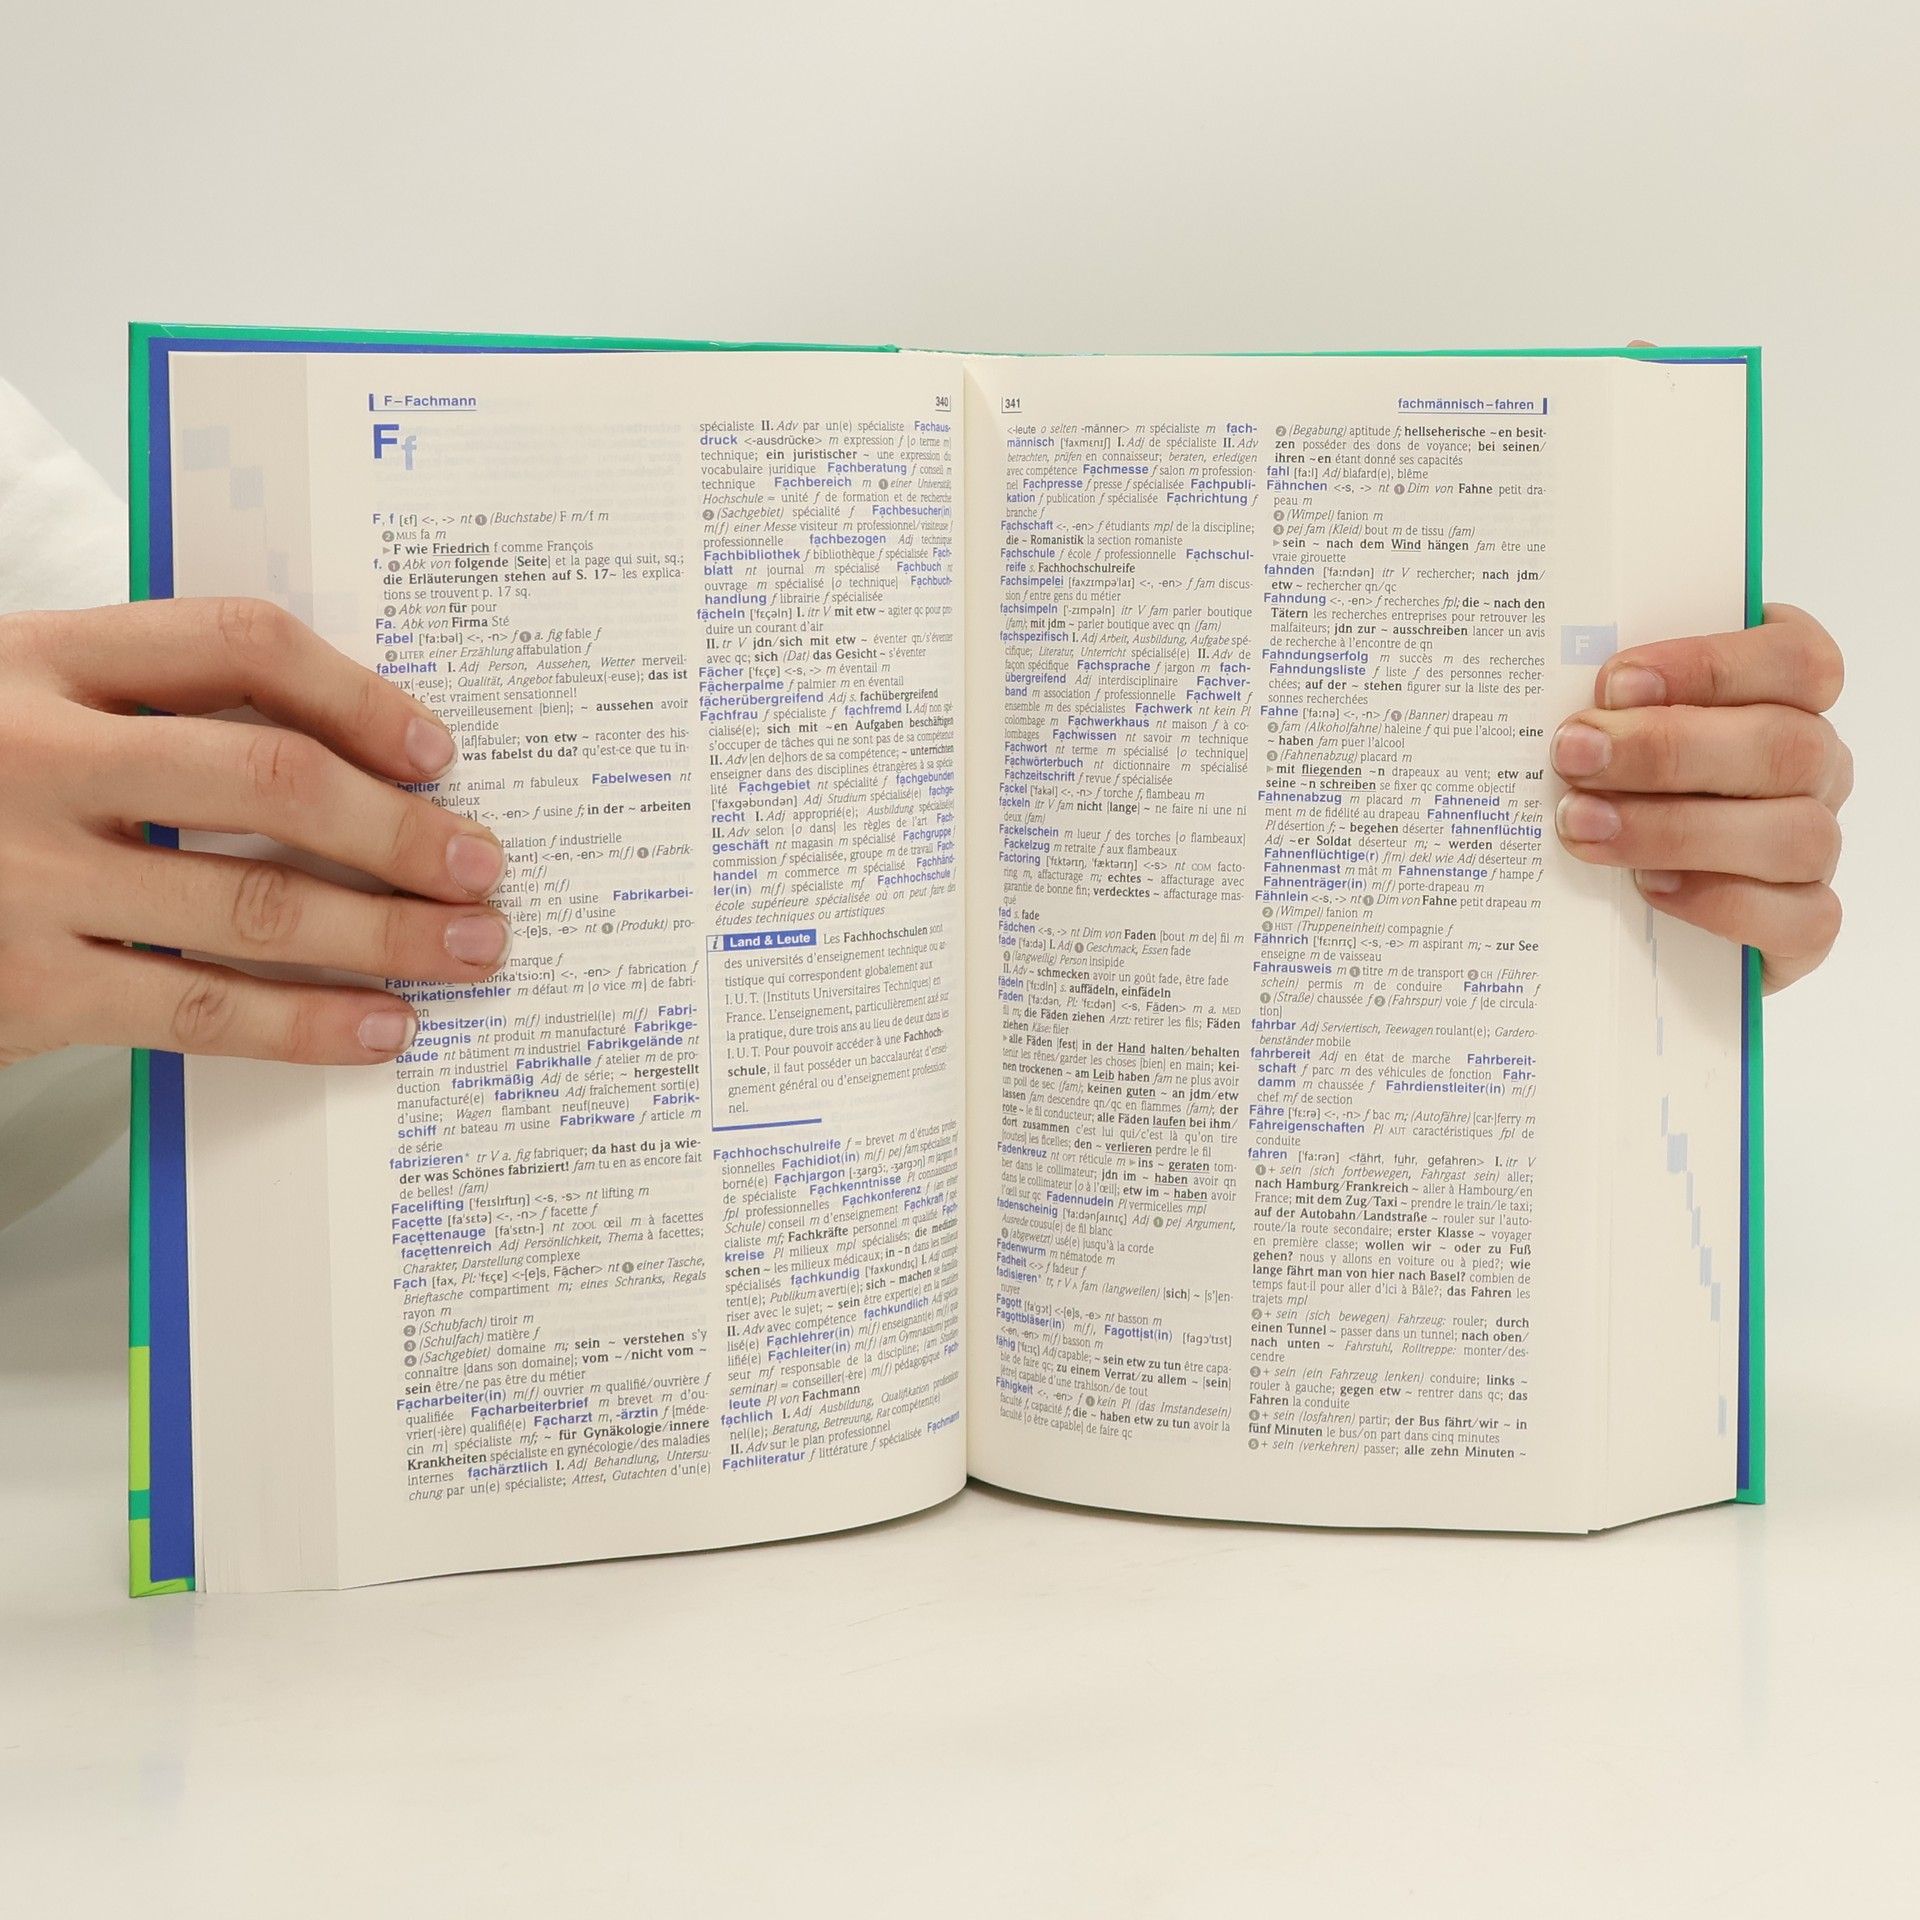 F–Fachmann
340
F f
F, f [ɛf] <-, -> nt ❶ (Buchstabe) F m/f m
❷ MUS fa m
▸ F wie Friedrich f comme François
f. ❶ Abk von folgende [Seite] et la page qui suit, sq.;
die Erläuterungen stehen auf S. 17~ les explica-
tions se trouvent p. 17 sq.
❷ Abk von für pour
Fa. Abk von Firma Sté
Fabel ['fa:bəl] <-, -n> f ❶ a. fig fable f
❷ LITER einer Erzählung affabulation f
fabelhaft I. Adj Person, Aussehen, Wetter merveil-
ux(-euse); Qualität, Angebot fabuleux(-euse); das ist
c'est vraiment sensationnel!
merveilleusement [bien]; ~ aussehen avoir
splendide
[af]fabuler; von etw ~ raconter des his-
was fabelst du da? qu'est-ce que tu in-
beltier nt animal m fabuleux Fabelwesen nt
fabuleux
<-, -en> f usine f; in der ~ arbeiten
tallation f industrielle
kant] <-en, -en> m(f) ❶ (Fabrik-
e) m(f)
icant(e) m(f)
travail m en usine Fabrikarbei-
(-ière) m(f) d'usine
<-[e]s, -e> nt ❶ (Produkt) pro-
marque f
brika'tsio:n] <-, -en> f fabrication f
brikationsfehler m défaut m [o vice m] de fabri-
on
ikbesitzer(in) m(f) industriel(le) m(f) Fabri-
rzeugnis nt produit m manufacturé Fabrikge-
bäude nt bâtiment m industriel Fabrikgelände nt
terrain m industriel Fabrikhalle f atelier m de pro-
duction fabrikmäßig Adj de série; ~ hergestellt
manufacturé(e) fabrikneu Adj fraîchement sorti(e)
d'usine; Wagen flambant neuf(neuve) Fabrik-
schiff nt bateau m usine Fabrikware f article m
de série
fabrizieren* tr V a. fig fabriquer; da hast du ja wie-
der was Schönes fabriziert! fam tu en as encore fait
de belles! (fam)
Facelifting ['feɪslɪftɪŋ] <-s, -s> nt lifting m
Facette [fa'sɛtə] <-, -n> f facette f
Facettenauge [fa'sɛtn-] nt ZOOL œil m à facettes
facettenreich Adj Persönlichkeit, Thema à facettes;
Charakter, Darstellung complexe
Fach [fax, Pl: 'fɛçɐ] <-[e]s, Fächer> nt ❶ einer Tasche,
Brieftasche compartiment m; eines Schranks, Regals
rayon m
❷ (Schubfach) tiroir m
❸ (Schulfach) matière f
❹ (Sachgebiet) domaine m; sein ~ verstehen s'y
connaître [dans son domaine]; vom ~/nicht vom ~
sein être/ne pas être du métier
Facharbeiter(in) m(f) ouvrier m qualifié/ouvrière f
qualifiée Facharbeiterbrief m brevet m d'ou-
vrier(-ière) qualifié(e) Facharzt m, -ärztin f [méde-
cin m] spécialiste mf; ~ für Gynäkologie/innere
Krankheiten spécialiste en gynécologie/des maladies
internes fachärztlich I. Adj Behandlung, Untersu-
chung par un(e) spécialiste; Attest, Gutachten d'un(e)
spécialiste II. Adv par un(e) spécialiste Fachaus-
druck <-ausdrücke> m expression f [o terme m]
technique; ein juristischer ~ une expression du
vocabulaire juridique Fachberatung f conseil m
technique Fachbereich m ❶ einer Universität,
Hochschule = unité f de formation et de recherche
❷ (Sachgebiet) spécialité f Fachbesucher(in)
m(f) einer Messe visiteur m professionnel/visiteuse f
professionnelle fachbezogen Adj technique
Fachbibliothek f bibliothèque f spécialisée Fach-
blatt nt journal m spécialisé Fachbuch nt
ouvrage m spécialisé [o technique] Fachbuch-
handlung f librairie f spécialisée
fächeln ['fɛçəln] I. itr V mit etw ~ agiter qc pour pro-
duire un courant d'air
II. tr V jdn/sich mit etw ~ éventer qn/s'éventer
avec qc; sich (Dat) das Gesicht ~ s'éventer
Fächer ['fɛçɐ] <-s, -> m éventail m
Fächerpalme f palmier m en éventail
fächerübergreifend Adj s. fachübergreifend
Fachfrau f spécialiste f fachfremd I. Adj non spé-
cialisé(e); sich mit ~en Aufgaben beschäftigen
s'occuper de tâches qui ne sont pas de sa compétence
II. Adv [en de]hors de sa compétence; ~ unterrichten
enseigner dans des disciplines étrangères à sa spécia-
lité Fachgebiet nt spécialité f fachgebunden
['faxgəbundən] Adj Studium spécialisé(e) fachge-
recht I. Adj approprié(e); Ausbildung spécialisé(e)
II. Adv selon [o dans] les règles de l'art Fach-
geschäft nt magasin m spécialisé Fachgruppe f
commission f spécialisée, groupe m de travail Fach-
handel m commerce m spécialisé Fachhänd-
ler(in) m(f) spécialiste mf Fachhochschule f
école supérieure spécialisée où on peut faire des
études techniques ou artistiques
i Land & Leute Les Fachhochschulen sont
des universités d'enseignement technique ou ar-
tistique qui correspondent globalement aux
I. U. T. (Instituts Universitaires Techniques) en
France. L'enseignement, particulièrement axé sur
la pratique, dure trois ans au lieu de deux dans les
I. U. T. Pour pouvoir accéder à une Fachhoch-
schule, il faut posséder un baccalauréat d'ensei-
gnement général ou d'enseignement profession-
nel.
Fachhochschulreife f = brevet m d'études profes-
sionnelles Fachidiot(in) m(f) pej fam spécialiste mf
borné(e) Fachjargon [-ʒargõ:, -ʒargɔŋ] m jargon m
de spécialiste Fachkenntnisse Pl connaissances
fpl professionnelles Fachkonferenz f (an einer
Schule) conseil m d'enseignement Fachkraft f spé-
cialiste mf; Fachkräfte personnel m qualifié Fach-
kreise Pl milieux mpl spécialisés; die medizini-
schen ~ les milieux médicaux; in ~n dans les milieux
spécialisés fachkundig ['faxkundıç] I. Adj compé-
tent(e); Publikum averti(e); sich ~ machen se familia-
riser avec le sujet; ~ sein être expert(e) en la matière
II. Adv avec compétence fachkundlich Adj spécia-
lisé(e) Fachlehrer(in) m(f) enseignant(e) m(f) qua-
lifié(e) Fachleiter(in) m(f) (am Gymnasium) profes-
seur mf responsable de la discipline; (am Studien-
seminar) = conseiller(-ère) m(f) pédagogique Fach-
leute Pl von Fachmann
fachlich I. Adj Ausbildung, Qualifikation profession-
nel(le); Beratung, Betreuung, Rat compétent(e)
II. Adv sur le plan professionnel
Fachliteratur f littérature f spécialisée Fachmann
341
fachmännisch–fahren
<-leute o selten -männer> m spécialiste m fach-
männisch ['faxmɛnıʃ] I. Adj de spécialiste II. Adv
betrachten, prüfen en connaisseur; beraten, erledigen
avec compétence Fachmesse f salon m profession-
nel Fachpresse f presse f spécialisée Fachpubli-
kation f publication f spécialisée Fachrichtung f
branche f
Fachschaft <-, -en> f étudiants mpl de la discipline;
die ~ Romanistik la section romaniste
Fachschule f école f professionnelle Fachschul-
reife s. Fachhochschulreife
Fachsimpelei [faxzımpə'laı] <-, -en> f fam discus-
sion f entre gens du métier
fachsimpeln ['-zımpəln] itr V fam parler boutique
(fam); mit jdm ~ parler boutique avec qn (fam)
fachspezifisch I. Adj Arbeit, Ausbildung, Aufgabe spé-
cifique; Literatur, Unterricht spécialisé(e) II. Adv de
façon spécifique Fachsprache f jargon m fach-
übergreifend Adj interdisciplinaire Fachver-
band m association f professionnelle Fachwelt f
ensemble m des spécialistes Fachwerk nt kein Pl
colombage m Fachwerkhaus nt maison f à co-
lombages Fachwissen nt savoir m technique
Fachwort nt terme m spécialisé [o technique]
Fachwörterbuch nt dictionnaire m spécialisé
Fachzeitschrift f revue f spécialisée
Fackel ['fakəl] <-, -n> f torche f, flambeau m
fackeln itr V fam nicht [lange] ~ ne faire ni une ni
deux (fam)
Fackelschein m lueur f des torches [o flambeaux]
Fackelzug m retraite f aux flambeaux
Factoring ['fɛktərıŋ, 'fæktərıŋ] <-s> nt COM facto-
ring m, affacturage m; echtes ~ affacturage avec
garantie de bonne fin; verdecktes ~ affacturage mas-
qué
fad s. fade
Fädchen <-s, -> nt Dim von Faden [bout m de] fil m
fade ['fa:də] I. Adj ❶ Geschmack, Essen fade
❷ (langweilig) Person insipide
II. Adv ~ schmecken avoir un goût fade, être fade
fädeln ['fɛ:dln] s. auffädeln, einfädeln
Faden ['fa:dən, Pl: 'fɛ:dən] <-s, Fäden> m a. MED
fil m; die Fäden ziehen Arzt: retirer les fils; Fäden
ziehen Käse: filer
▸ alle Fäden [fest] in der Hand halten/behalten
tenir les rênes/garder les choses [bien] en main; kei-
nen trockenen ~ am Leib haben fam ne plus avoir
un poil de sec (fam); keinen guten ~ an jdm/etw
lassen fam descendre qn/qc en flammes (fam); der
rote ~ le fil conducteur; alle Fäden laufen bei ihm/
dort zusammen c'est lui qui/c'est là qu'on tire
[toutes] les ficelles; den ~ verlieren perdre le fil
Fadenkreuz nt OPT réticule m ▸ ins ~ geraten tom-
ber dans le collimateur; jdn im ~ haben avoir qn
dans le collimateur [o à l'œil]; etw im ~ haben avoir
l'œil sur qc Fadennudeln Pl vermicelles mpl
fadenscheinig ['fa:dənʃaınıç] Adj ❶ pej Argument,
Ausrede cousu(e) de fil blanc
❷ (abgewetzt) usé(e) jusqu'à la corde
Fadenwurm m nématode m
Fadheit <-> f fadeur f
fadisieren* tr, r V A fam (langweilen) [sich] ~ [s']en-
nuyer
Fagott [fa'gɔt] <-[e]s, -e> nt basson m
Fagottbläser(in) m(f), Fagottist(in) [fagɔ'tıst]
<-en, -en> m(f) basson m
fähig ['fɛ:ıç] Adj capable; ~ sein etw zu tun être capa-
ble de faire qc; zu einem Verrat/zu allem ~ [sein]
[être] capable d'une trahison/de tout
Fähigkeit <-, -en> f ❶ kein Pl (das Imstandesein)
faculté f, capacité f; die ~ haben etw zu tun avoir la
faculté [o être capable] de faire qc
❷ (Begabung) aptitude f; hellseherische ~en besit-
zen posséder des dons de voyance; bei seinen/
ihren ~en étant donné ses capacités
fahl [fa:l] Adj blafard(e), blême
Fähnchen <-s, -> nt ❶ Dim von Fahne petit dra-
peau m
❷ (Wimpel) fanion m
❸ pej fam (Kleid) bout m de tissu (fam)
▸ sein ~ nach dem Wind hängen fam être une
vraie girouette
fahnden ['fa:ndən] itr V rechercher; nach jdm/
etw ~ rechercher qn/qc
Fahndung <-, -en> f recherches fpl; die ~ nach den
Tätern les recherches entreprises pour retrouver les
malfaiteurs; jdn zur ~ ausschreiben lancer un avis
de recherche à l'encontre de qn
Fahndungserfolg m succès m des recherches
Fahndungsliste f liste f des personnes recher-
chées; auf der ~ stehen figurer sur la liste des per-
sonnes recherchées
Fahne ['fa:nə] <-, -n> f ❶ (Banner) drapeau m
❷ fam (Alkoholfahne) haleine f qui pue l'alcool; eine
~ haben fam puer l'alcool
❸ (Fahnenabzug) placard m
▸ mit fliegenden ~n drapeaux au vent; etw auf
seine ~n schreiben se fixer qc comme objectif
Fahnenabzug m placard m Fahneneid m ser-
ment m de fidélité au drapeau Fahnenflucht f kein
Pl désertion f; ~ begehen déserter fahnenflüchtig
Adj ~er Soldat déserteur m; ~ werden déserter
Fahnenflüchtige(r) f(m) dekl wie Adj déserteur m
Fahnenmast m mât m Fahnenstange f hampe f
Fahnenträger(in) m(f) porte-drapeau m
Fähnlein <-s, -> nt ❶ Dim von Fahne petit drapeau m
❷ (Wimpel) fanion m
❸ HIST (Truppeneinheit) compagnie f
Fähnrich ['fɛ:nrıç] <-s, -e> m aspirant m; ~ zur See
enseigne m de vaisseau
Fahrausweis m ❶ titre m de transport ❷ CH (Führer-
schein) permis m de conduire Fahrbahn f
❶ (Straße) chaussée f ❷ (Fahrspur) voie f [de circula-
tion]
fahrbar Adj Serviertisch, Teewagen roulant(e); Gardero-
benständer mobile
fahrbereit Adj en état de marche Fahrbereit-
schaft f parc m des véhicules de fonction Fahr-
damm m chaussée f Fahrdienstleiter(in) m(f)
chef mf de section
Fähre ['fɛ:rə] <-, -n> f bac m; (Autofähre) [car-]ferry m
Fahreigenschaften Pl AUT caractéristiques fpl de
conduite
fahren ['fa:rən] <fährt, fuhr, gefahren> I. itr V
❶ + sein (sich fortbewegen, Fahrgast sein) aller;
nach Hamburg/Frankreich ~ aller à Hambourg/en
France; mit dem Zug/Taxi ~ prendre le train/le taxi;
auf der Autobahn/Landstraße ~ rouler sur l'auto-
route/la route secondaire; erster Klasse ~ voyager
en première classe; wollen wir ~ oder zu Fuß
gehen? nous y allons en voiture ou à pied?; wie
lange fährt man von hier nach Basel? combien de
temps faut-il pour aller d'ici à Bâle?; das Fahren les
trajets mpl
❷ + sein (sich bewegen) Fahrzeug: rouler; durch
einen Tunnel ~ passer dans un tunnel; nach oben/
nach unten ~ Fahrstuhl, Rolltreppe: monter/des-
cendre
❸ + sein (ein Fahrzeug lenken) conduire; links ~
rouler à gauche; gegen etw ~ rentrer dans qc; das
Fahren la conduite
❹ + sein (losfahren) partir; der Bus fährt/wir ~ in
fünf Minuten le bus/on part dans cinq minutes
❺ + sein (verkehren) passer; alle zehn Minuten ~
F